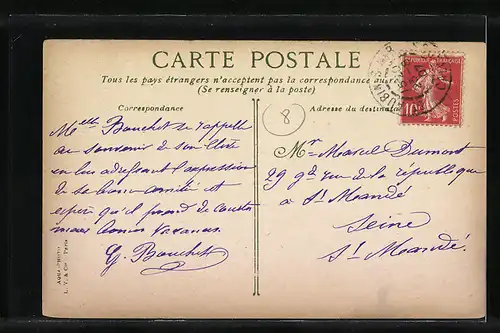 CARTE POSTALE
Tous les pays étrangers n'acceptent pas la correspondance au
(Se renseigner à la poste)
Correspondance
Adresse du destinat
8
Melle Bouchet se rappelle
au souvenir de son élève
en lui adressant l'expression
de sa bonne amitié et
espère qu'il prend de
bonnes vacances.
G. Bouchet
Mr Marcel Dumont
29 gde rue de la république
à St Mandé
Seine
St Mandé.
REPUBLIQUE FRANÇAISE
10
POSTES
L. V. & Cie Paris